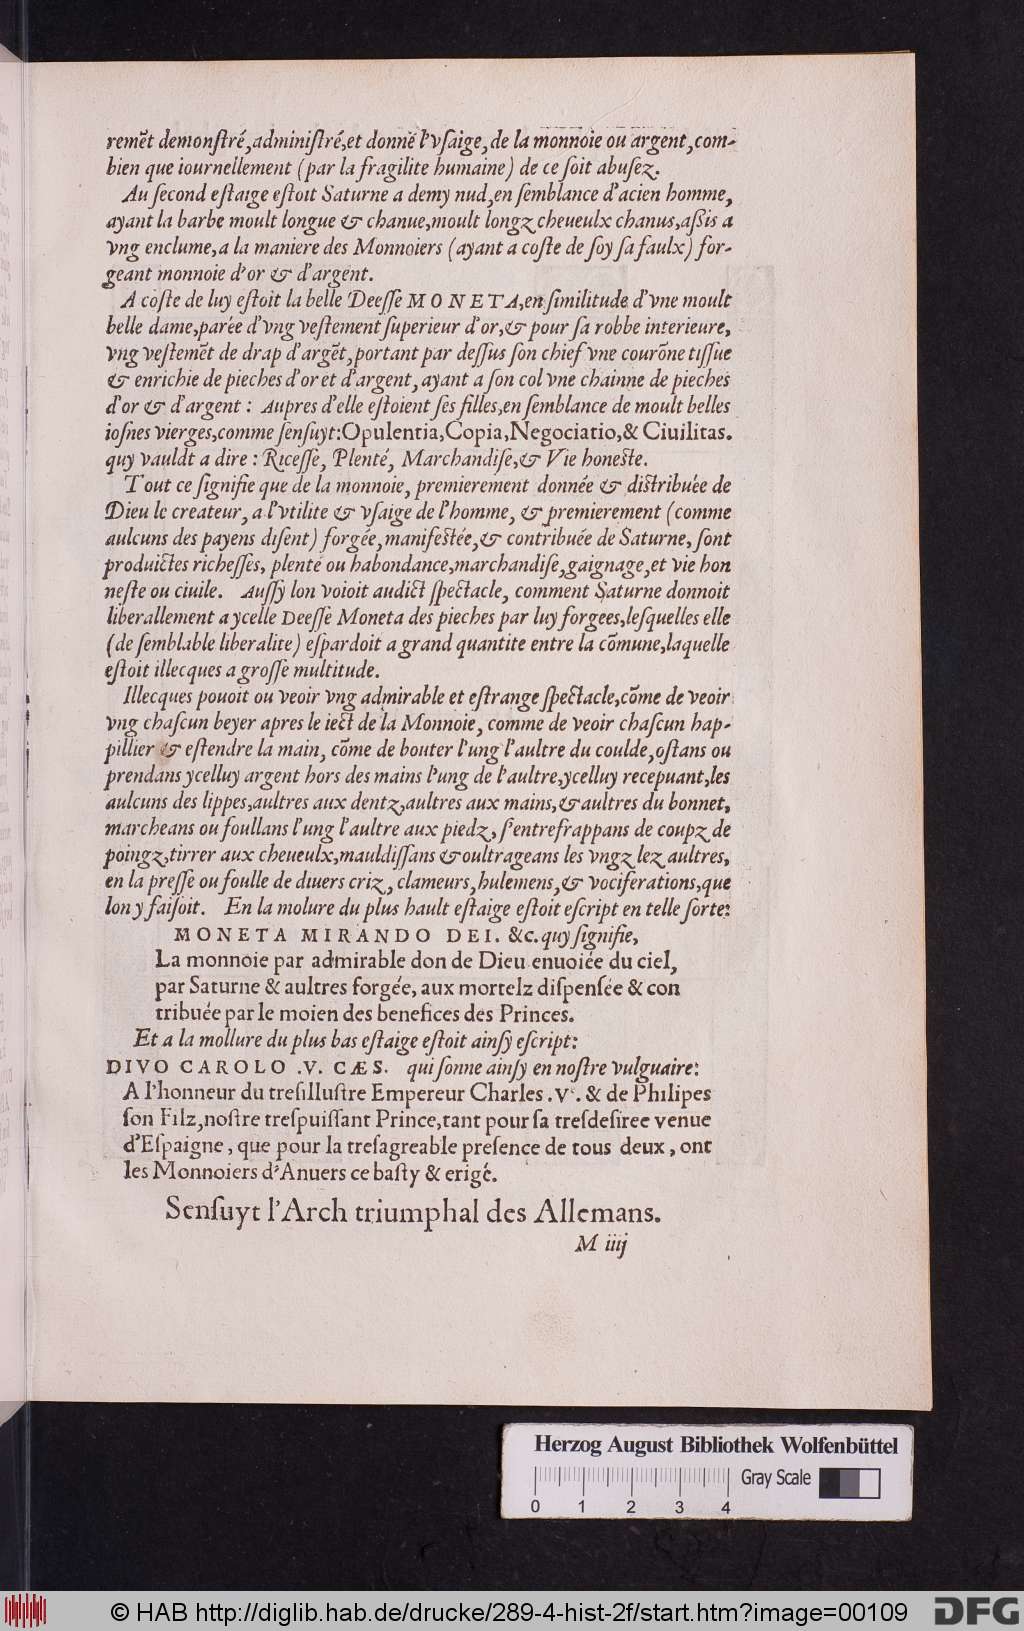 remēt demonſtré,adminiſtré,et donné l'vſaige, de la monnoie ou argent, com-
bien que iournellement (par la fragilite humaine) de ce ſoit abuſez.
Au ſecond eſtaige eſtoit Saturne a demy nud, en ſemblance d'acien homme,
ayant la barbe moult longue & chanue, moult longz cheueulx chanus, aßis a
vng enclume, a la maniere des Monnoiers (ayant a coſte de ſoy ſa faulx) for-
geant monnoie d'or & d'argent.
A coſte de luy eſtoit la belle Deeſſe MONETA, en ſimilitude d'vne moult
belle dame, parée d'vng veſtement ſuperieur d'or, & pour ſa robbe interieure,
vng veſtemēt de drap d'argēt, portant par deſſus ſon chief vne courōne tiſſue
& enrichie de pieches d'or et d'argent, ayant a ſon col vne chainne de pieches
d'or & d'argent : Aupres d'elle eſtoient ſes filles, en ſemblance de moult belles
ioſnes vierges, comme ſenſuyt: Opulentia, Copia, Negociatio, & Ciuilitas.
quy vauldt a dire : Riceſſe, Plenté, Marchandiſe, & Vie honeſte.
Tout ce ſignifie que de la monnoie, premierement donnée & diſtribuée de
Dieu le createur, a l'vtilite & vſaige de l'homme, & premierement (comme
aulcuns des payens diſent) forgée, manifeſtée, & contribuée de Saturne, ſont
produictes richeſſes, plenté ou habondance, marchandiſe, gaignage, et vie hon
neſte ou ciuile. Auſſy lon voioit audict ſpectacle, comment Saturne donnoit
liberallement a ycelle Deeſſe Moneta des pieches par luy forgees, leſquelles elle
(de ſemblable liberalite) eſpardoit a grand quantite entre la cōmune, laquelle
eſtoit illecques a groſſe multitude.
Illecques pouoit ou veoir vng admirable et eſtrange ſpectacle, cōme de veoir
vng chaſcun beyer apres le iect de la Monnoie, comme de veoir chaſcun hap-
pillier & eſtendre la main, cōme de bouter l'ung l'aultre du coulde, oſtans ou
prendans ycelluy argent hors des mains l'ung de l'aultre, ycelluy recepuant, les
aulcuns des lippes, aultres aux dentz, aultres aux mains, & aultres du bonnet,
marcheans ou foullans l'ung l'aultre aux piedz, s'entrefrappans de coupz de
poingz, tirrer aux cheueulx, mauldiſſans & oultrageans les vngz lez aultres,
en la preſſe ou foulle de diuers criz, clameurs, hulemens, & vociferations, que
lon y faiſoit. En la molure du plus hault eſtaige eſtoit eſcript en telle ſorte:
MONETA MIRANDO DEI. &c. quy ſignifie,
La monnoie par admirable don de Dieu enuoiée du ciel,
par Saturne & aultres forgée, aux mortelz diſpenſée & con
tribuée par le moien des benefices des Princes.
Et a la mollure du plus bas eſtaige eſtoit ainſy eſcript:
DIVO CAROLO .V. CÆS. qui ſonne ainſy en noſtre vulguaire:
A l'honneur du treſilluſtre Empereur Charles .Vᵉ. & de Philipes
ſon Filz, noſtre treſpuiſſant Prince, tant pour ſa treſdeſiree venue
d'Eſpaigne, que pour la treſagreable preſence de tous deux, ont
les Monnoiers d'Anuers ce baſty & erigé.
Senſuyt l'Arch triumphal des Allemans.
M iiij
Herzog August Bibliothek Wolfenbüttel
Gray Scale
0 1 2 3 4
© HAB http://diglib.hab.de/drucke/289-4-hist-2f/start.htm?image=00109
DFG